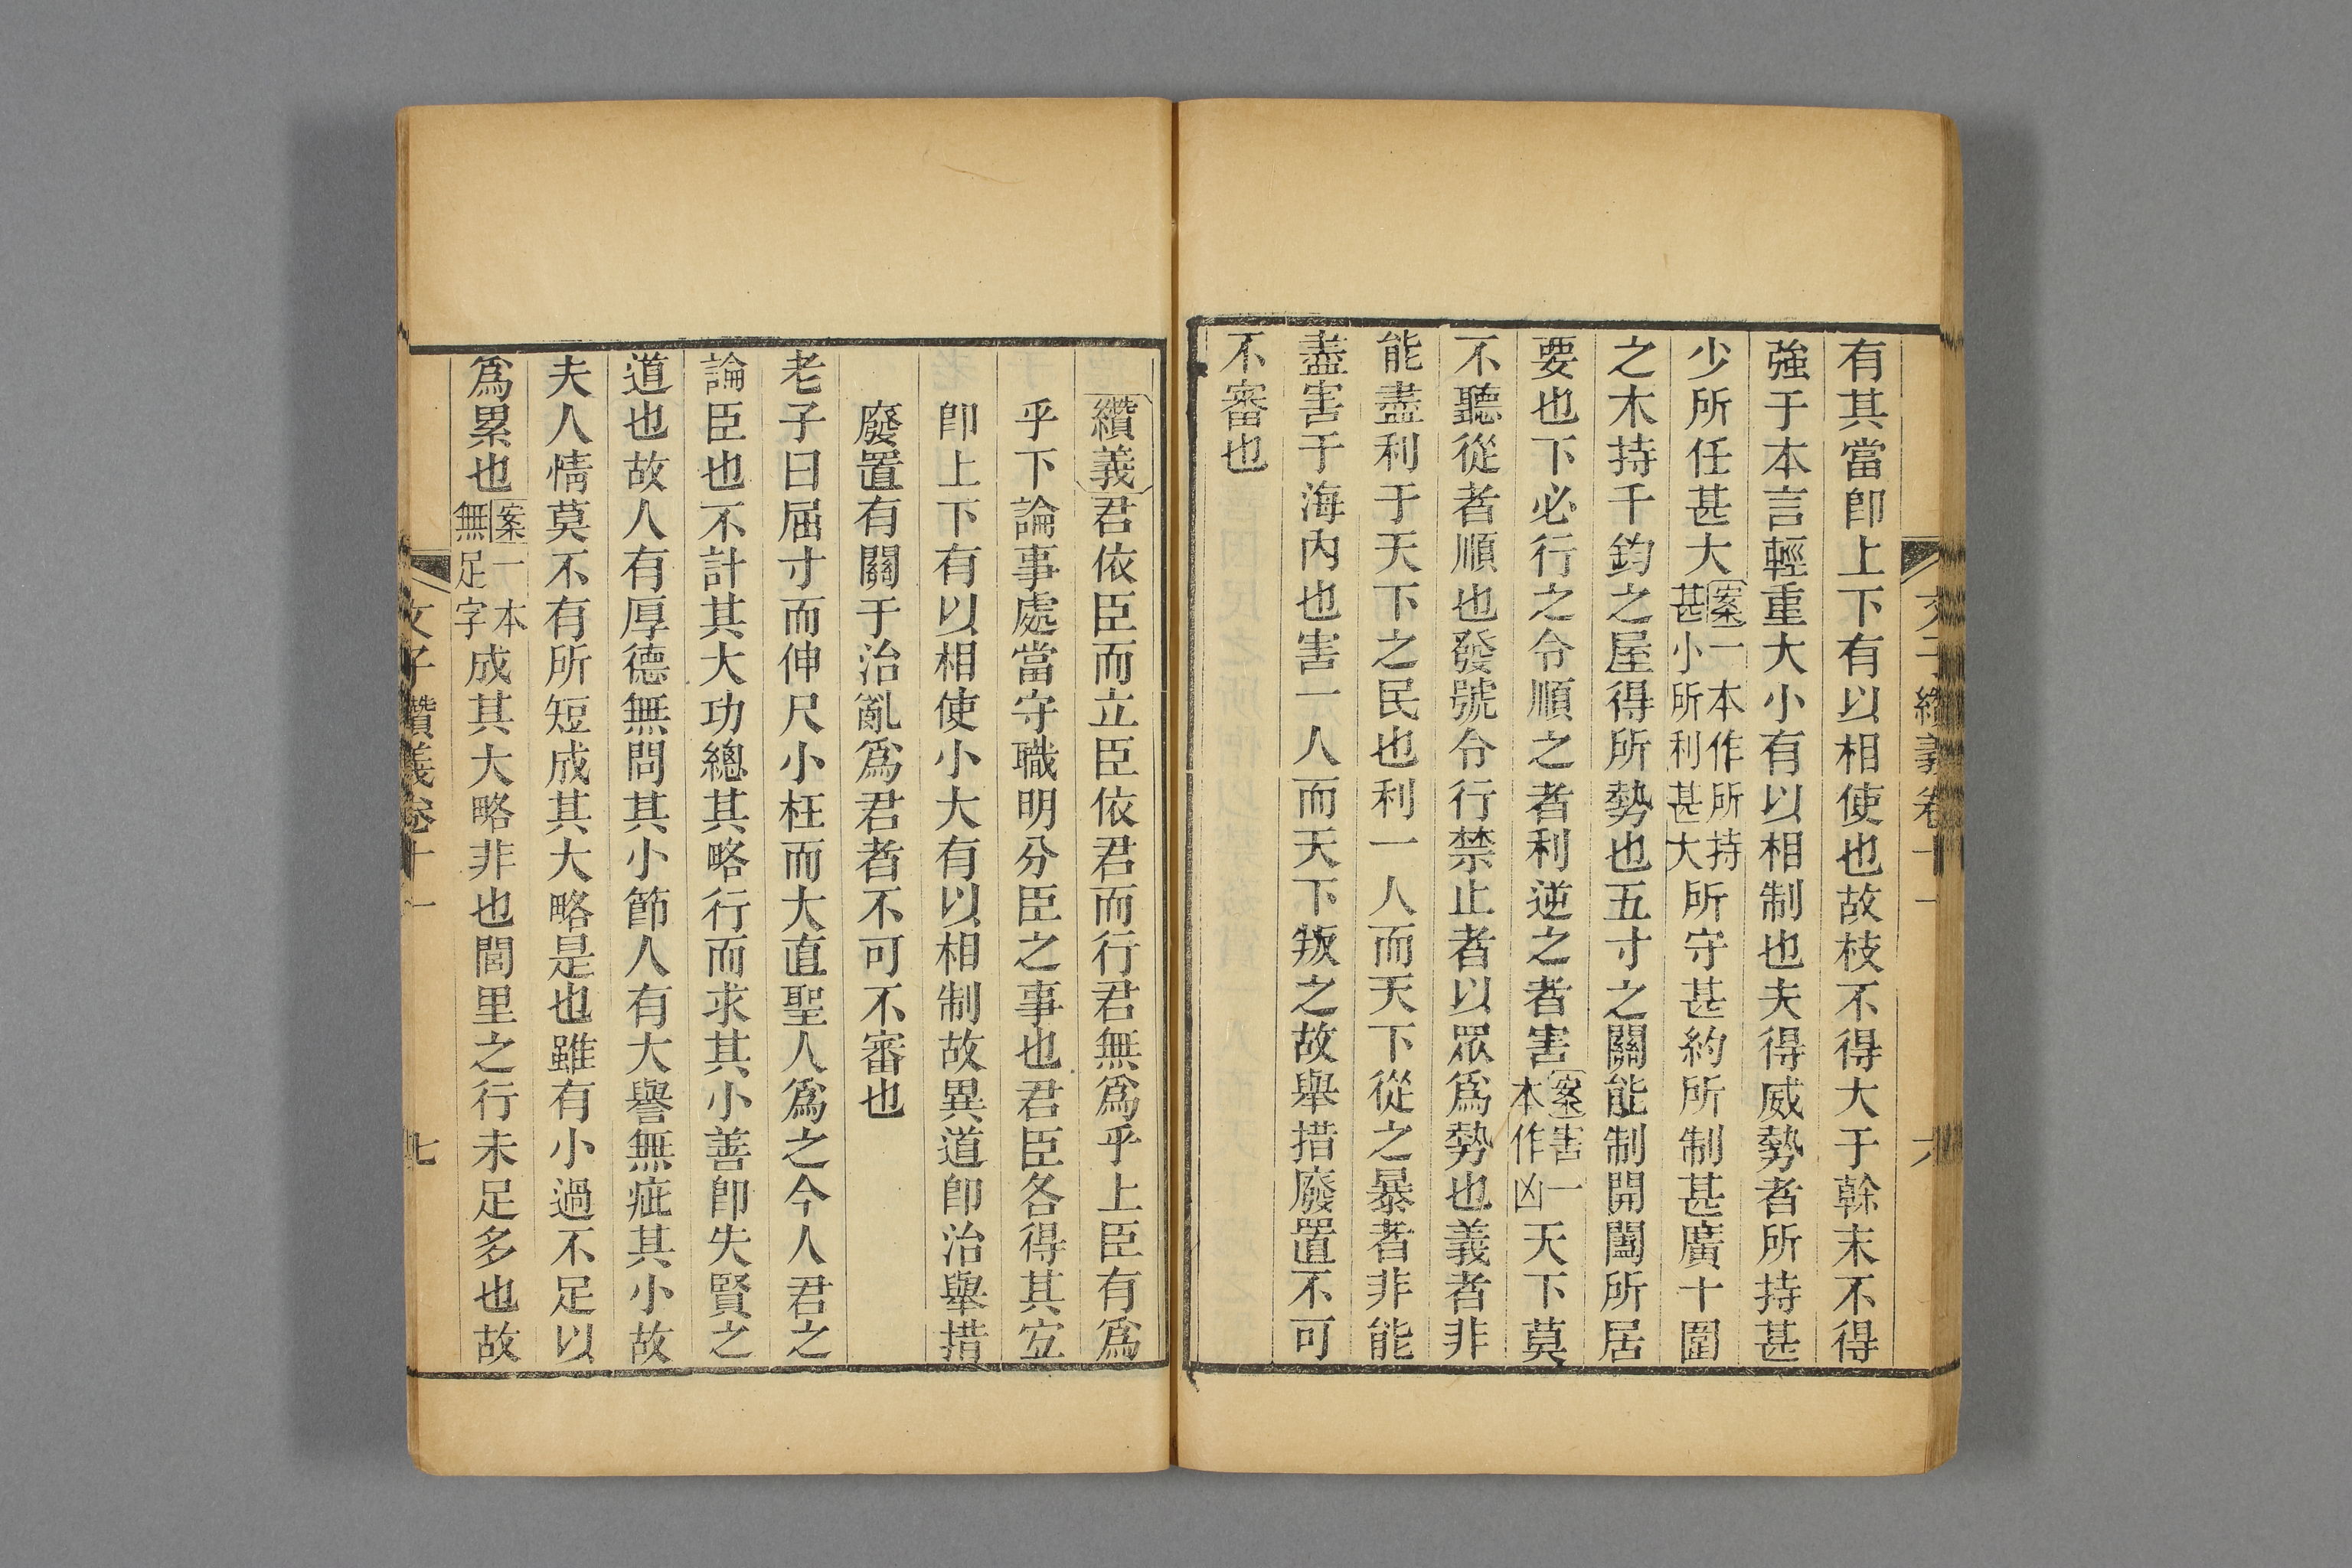 文子纘義卷十一 六
有其當卽上下有以相使也故枝不得大于榦末不得
強于本言輕重大小有以相制也夫得威勢者所持甚
少所任甚大案一本作所持甚小所利甚大所守甚約所制甚廣十圍
之木持千鈞之屋得所勢也五寸之關能制開闔所居
要也下必行之令順之者利逆之者害案害一本作凶天下莫
不聽從者順也發號令行禁止者以眾爲勢也義者非
能盡利于天下之民也利一人而天下從之暴者非能
盡害于海內也害一人而天下叛之故舉措廢置不可
不審也
纘義君依臣而立臣依君而行君無爲乎上臣有爲
乎下論事處當守職明分臣之事也君臣各得其宜
卽上下有以相使小大有以相制故異道卽治舉措
廢置有關于治亂爲君者不可不審也
老子曰屈寸而伸尺小枉而大直聖人爲之今人君之
論臣也不計其大功總其略行而求其小善卽失賢之
道也故人有厚德無問其小節人有大譽無疵其小故
夫人情莫不有所短成其大略是也雖有小過不足以
爲累也案一本無足字成其大略非也閭里之行未足多也故
文子纘義卷十一 七